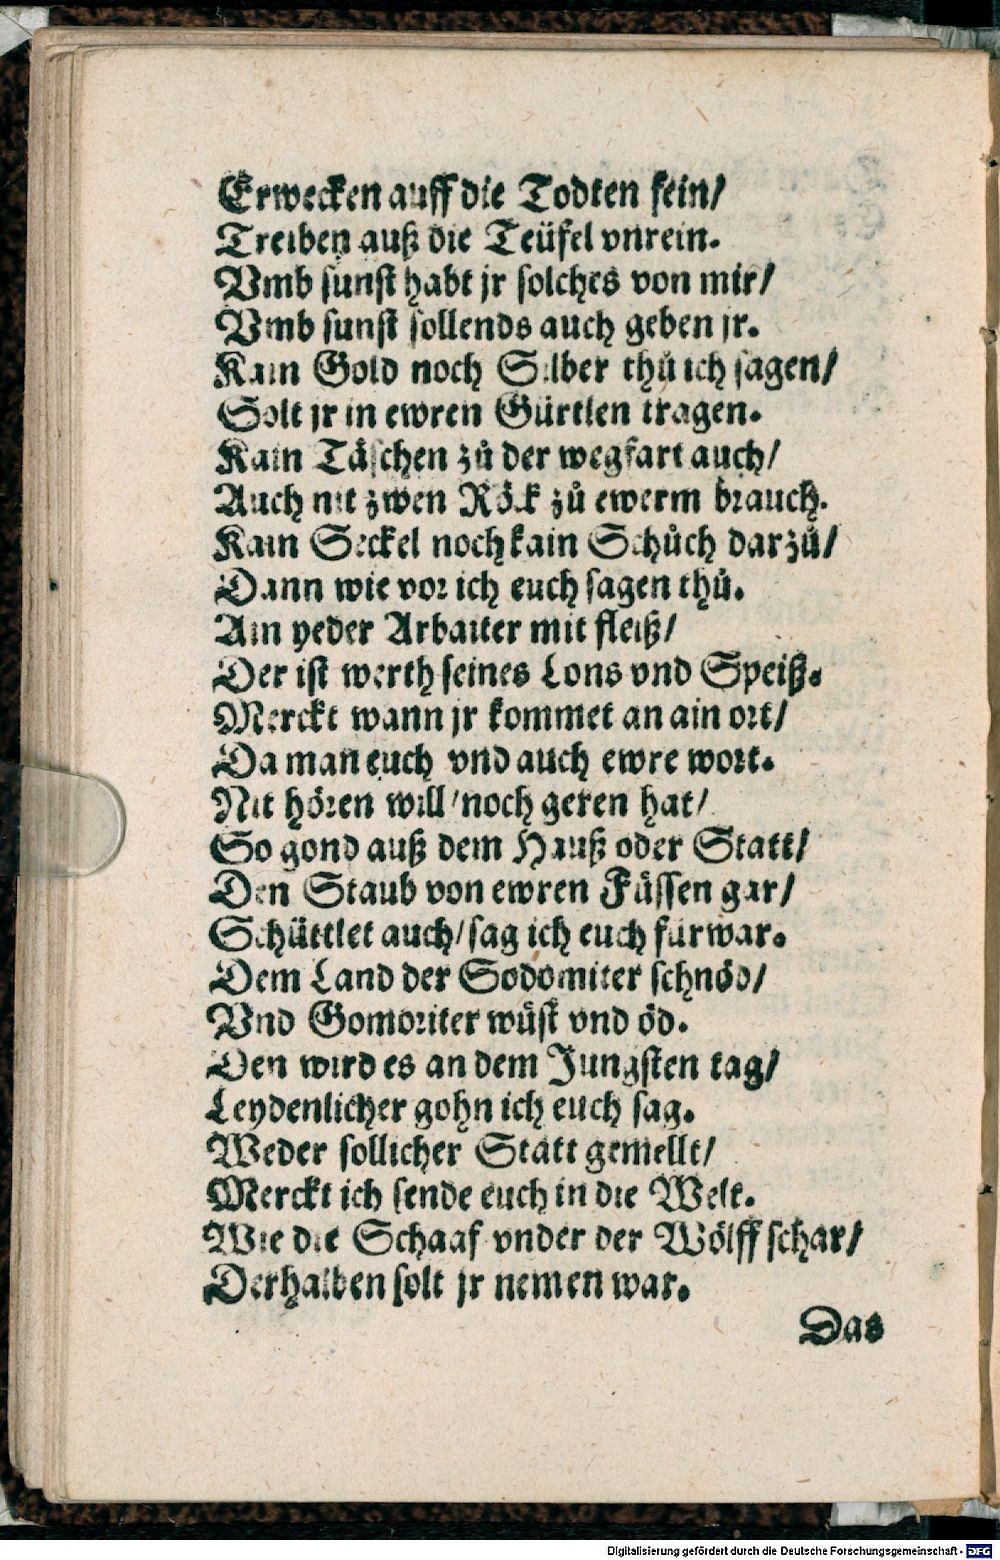 Erwecken auff die Todten fein/
Treiben auß die Teüfel vnrein.
Vmb sunst habt jr solches von mir/
Vmb sunst sollends auch geben jr.
Kain Gold noch Silber thů ich sagen/
Solt jr in ewren Gürtlen tragen.
Kain Täschen zů der wegfart auch/
Auch nit zwen Röck zů ewerm brauch.
Kain Seckel noch kain Schůch darzů/
Dann wie vor ich euch sagen thů.
Ain yeder Arbaiter mit fleiß/
Der ist werth seines Lons vnd Speiß.
Merckt wann jr kommet an ain ort/
Da man euch vnd auch ewre wort.
Nit hören will/noch geren hat/
So gond auß dem Hauß oder Statt/
Den Staub von ewren Füssen gar/
Schüttlet auch/sag ich euch fürwar.
Dem Land der Sodomiter schnöd/
Vnd Gomoriter wüst vnd öd.
Den wird es an dem Jungsten tag/
Leydenlicher gohn ich euch sag.
Weder sollicher Statt gemellt/
Merckt ich sende euch in die Welt.
Wie die Schaaf vnder der Wölff schar/
Derhalben solt jr nemen war.
Das
Digitalisierung gefördert durch die Deutsche Forschungsgemeinschaft - DFG